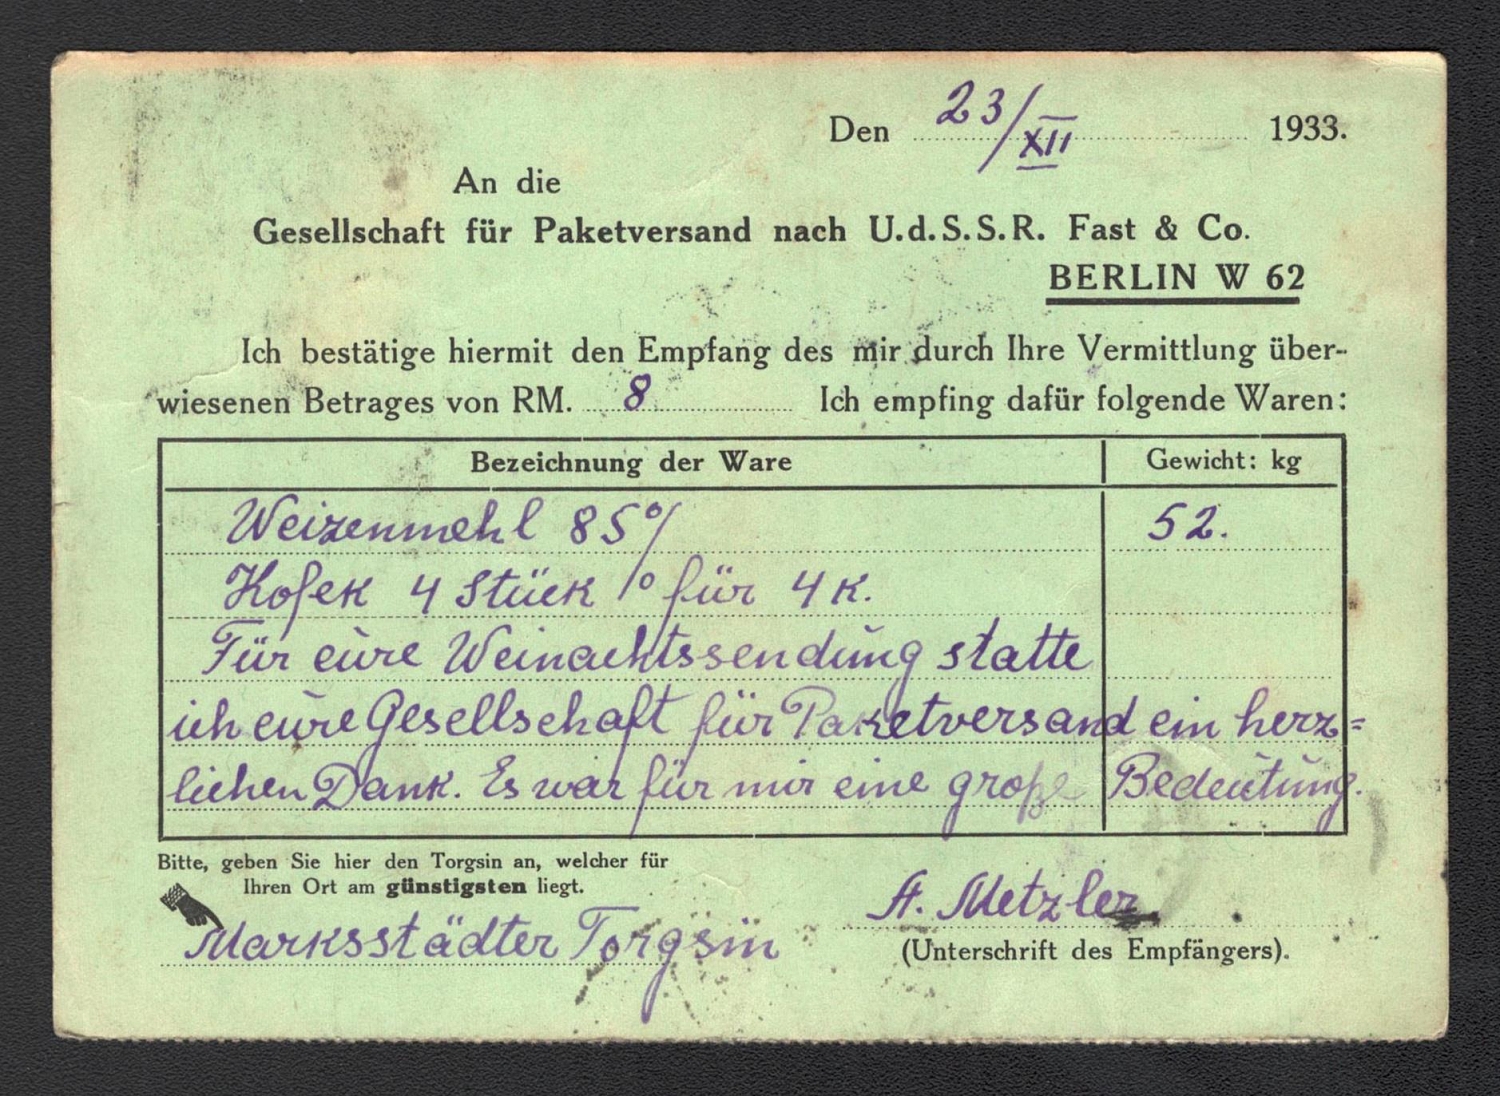 Den 23/XII 1933.
An die
Gesellschaft für Paketversand nach U.d.S.S.R. Fast & Co.
BERLIN W 62
Ich bestätige hiermit den Empfang des mir durch Ihre Vermittlung über-
wiesenen Betrages von RM. 8 Ich empfing dafür folgende Waren:
Bezeichnung der Ware Gewicht: kg
Weizenmehl 85% 52.
Hofek 4 Stück für 4 K.
Für eure Weinachtssendung statte
ich eure Gesellschaft für Paketversand ein herz=
lichen Dank. Es war für mir eine große Bedeutung.
Bitte, geben Sie hier den Torgsin an, welcher für
Ihren Ort am günstigsten liegt.
Marksstädter Torgsin
A. Metzler
(Unterschrift des Empfängers).